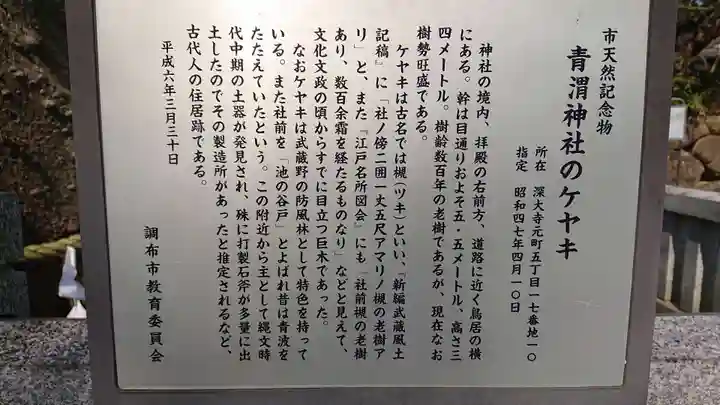 市天然記念物
青渭神社のケヤキ
所在 深大寺元町五丁目一七番地一〇
指定 昭和四七年四月一〇日
神社の境内、拝殿の右前方、道路に近く鳥居の横
にある。幹は目通りおよそ五・五メートル、高さ三
四メートル。樹齢数百年の老樹であるが、現在なお
樹勢旺盛である。
ケヤキは古名では槻(ツキ)といい、『新編武蔵風土
記稿』に「社ノ傍二囲一丈五尺アマリノ槻の老樹ア
リ」と、また『江戸名所図会』にも「社前槻の老樹
あり、数百余霜を経たるものなり」などと見えて、
文化文政の頃からすでに目立つ巨木であった。
なおケヤキは武蔵野の防風林として特色を持って
いる。また社前を「池の谷戸」とよばれ昔は青波を
たたえていたという。この附近から主として縄文時
代中期の土器が発見され、殊に打製石斧が多量に出
土したのでその製造所があったと推定されるなど、
古代人の住居跡である。
平成六年三月三十日
調布市教育委員会